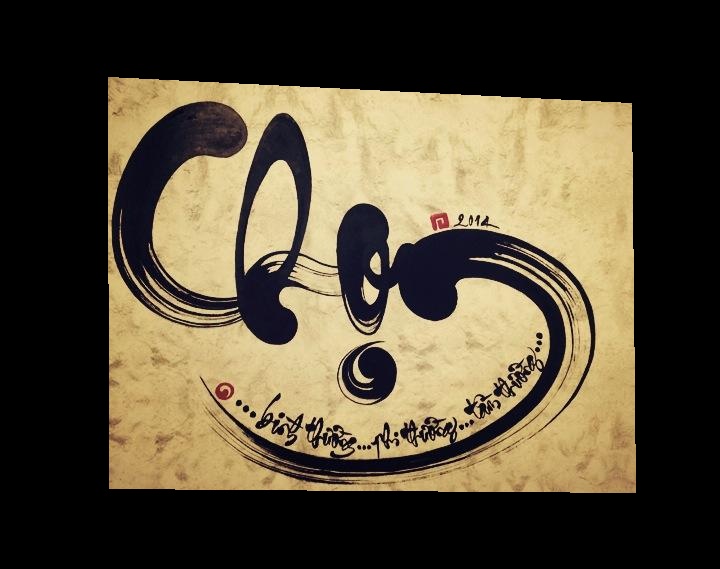 Chọn
2014
...bình thường...phi thường...tầm thường...